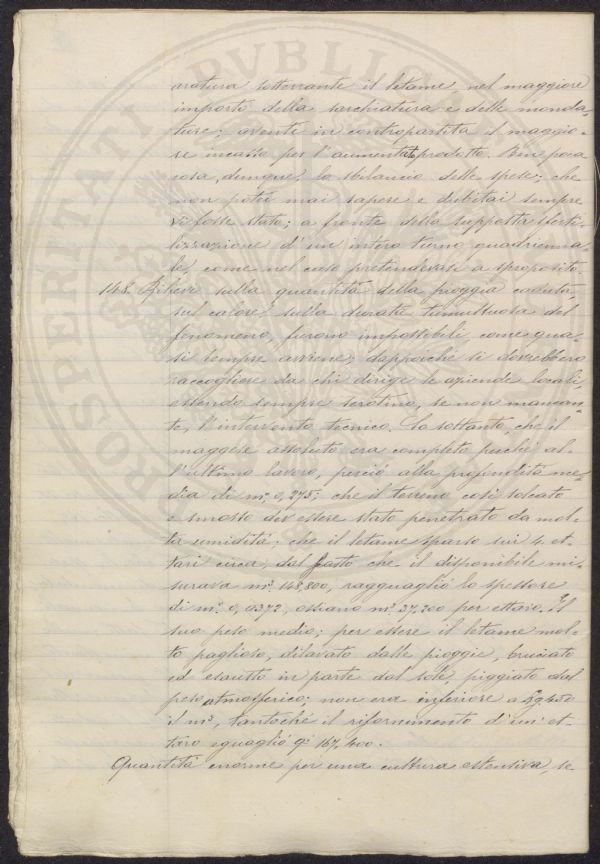 aratura sotterrante il letame, nel maggiore
importo della sarchiatura e delle monda-
ture; avente in contropartita il maggio-
re incasso per l'aumentato prodotto. Ben poca
cosa, dunque, lo sbilancio delle spese; che
non potei mai sapere e dubitai sempre
vi fosse stato; a fronte della supposta ferti-
lizzazione d'un intero turno quadrienna-
le, come nel caso pretendevasi a sproposito.
148. Rilievi sulla quantità della pioggia caduta,
sul calore, sulla durata tumultuosa del
fenomeno, furono impossibili, come qua-
si sempre avviene; dappoichè si dovrebbero
raccogliere da chi dirige le aziende locali,
essendo sempre serotino, se non mancan-
te, l'intervento tecnico. So soltanto, che il
maggese assoluto era completo fuorchè al-
l'ultimo lavoro, perciò alla profondità me-
dia di m. 0,275; che il terreno così solcato
e smosso dev'essere stato penetrato da mol-
ta umidità; che il letame sparso sui 4 et-
tari circa, dal fatto che il disponibile mi-
surava m³ 148,800, ragguagliò lo spessore
di m. 0,0372, ossiano m³ 37,200 per ettaro. Il
suo peso medio; per essere il letame mol-
to paglioso, dilavato dalle pioggie, bruciato
ed esausto in parte dal sole, piggiato dal
peso atmosferico; non era inferiore a Kg. 450
il m³, tantochè il rifornimento d'un et-
taro eguagliò q. 167,400.
Quantità enorme per una cultura estensiva, se
PROSPERITATI PVBLICAE